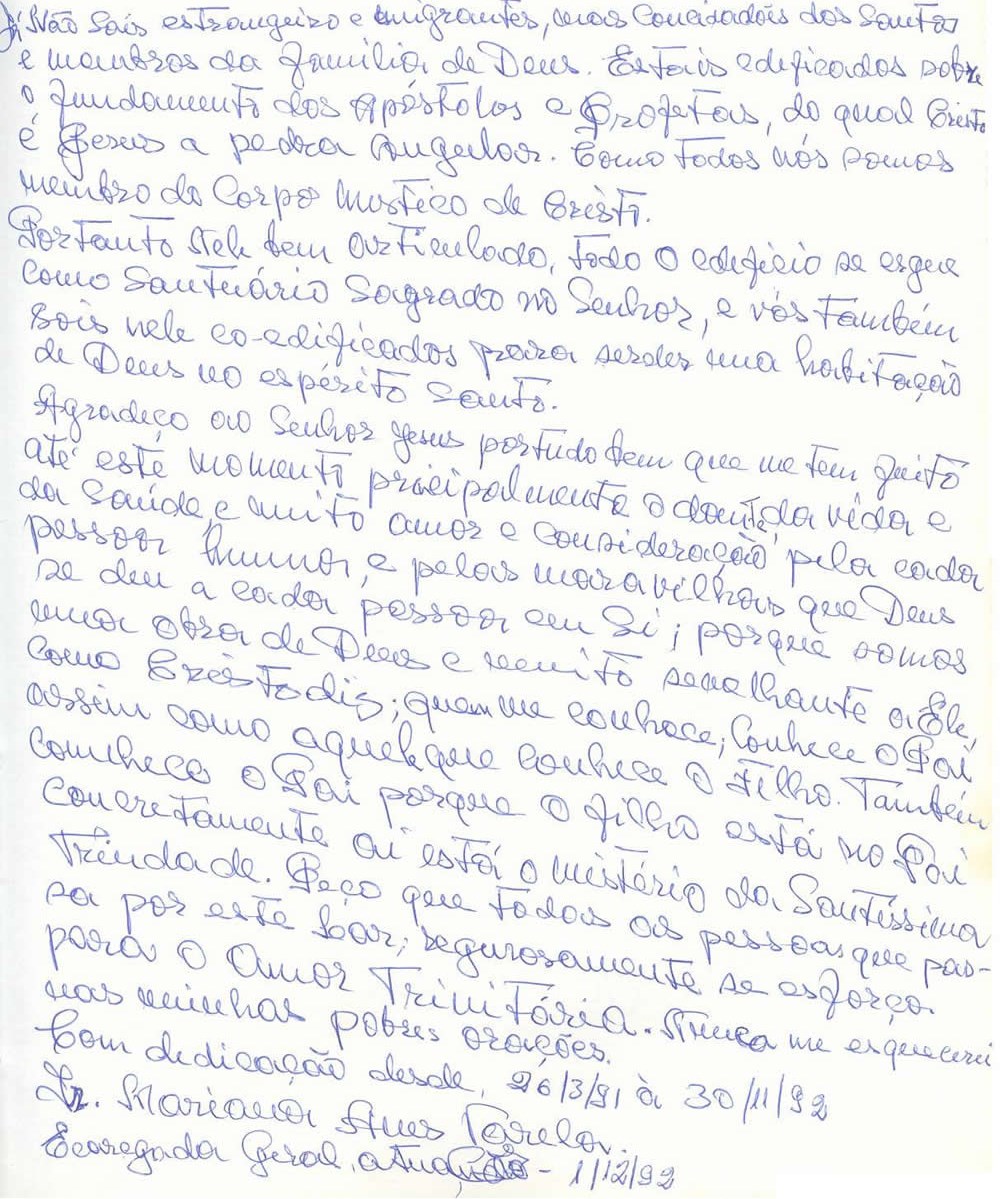 já Não Sois estrangeiro e emigrantes, mas Concidadãos dos Santos
e membros da família de Deus. Estais edificados sobre
o fundamento dos Apóstolos e Profetas, do qual Cristo
é Jesus a pedra Angular. Como todos nós somos
membro do Corpo Mistico de Cristo.
Portanto Nele bem articulado, todo o edificio se ergue
como Santuário Sagrado no Senhor, e vós também
sois nele co-edificados para serdes uma habitação
de Deus no espírito Santo.
Agradeço ao Senhor Jesus por tudo bem que me tem feito
até este momento principalmente o da vida e
da Saúde, e muito amor e Consideração pela cada
pessoa humna, e pelas maravilhas que Deus
se deu a cada pessoa em Si; porque somos
uma obra de Deus e muito semelhante a Ele,
como Cristo diz; quem me conhece; Conhece o Pai
assim como aquele que conhece o Filho. Também
comhece o Pai porque o filho está no Pai
Concretamente ai está o mistério da Santíssima
Trindade. Peço que todas as pessoas que pas-
sa por este Lar; regurosamente se esforço.
para o Amor Trinitária. Nunca me esquecerei
nas minhas pobres orações.
Com dedicação desde, 26/3/91 à 30/11/92
Ir. Mariana Alves
Ecaregada Geral, - 1/12/92